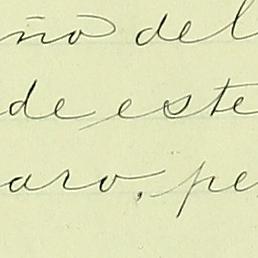 ño del
de este
aro, pe